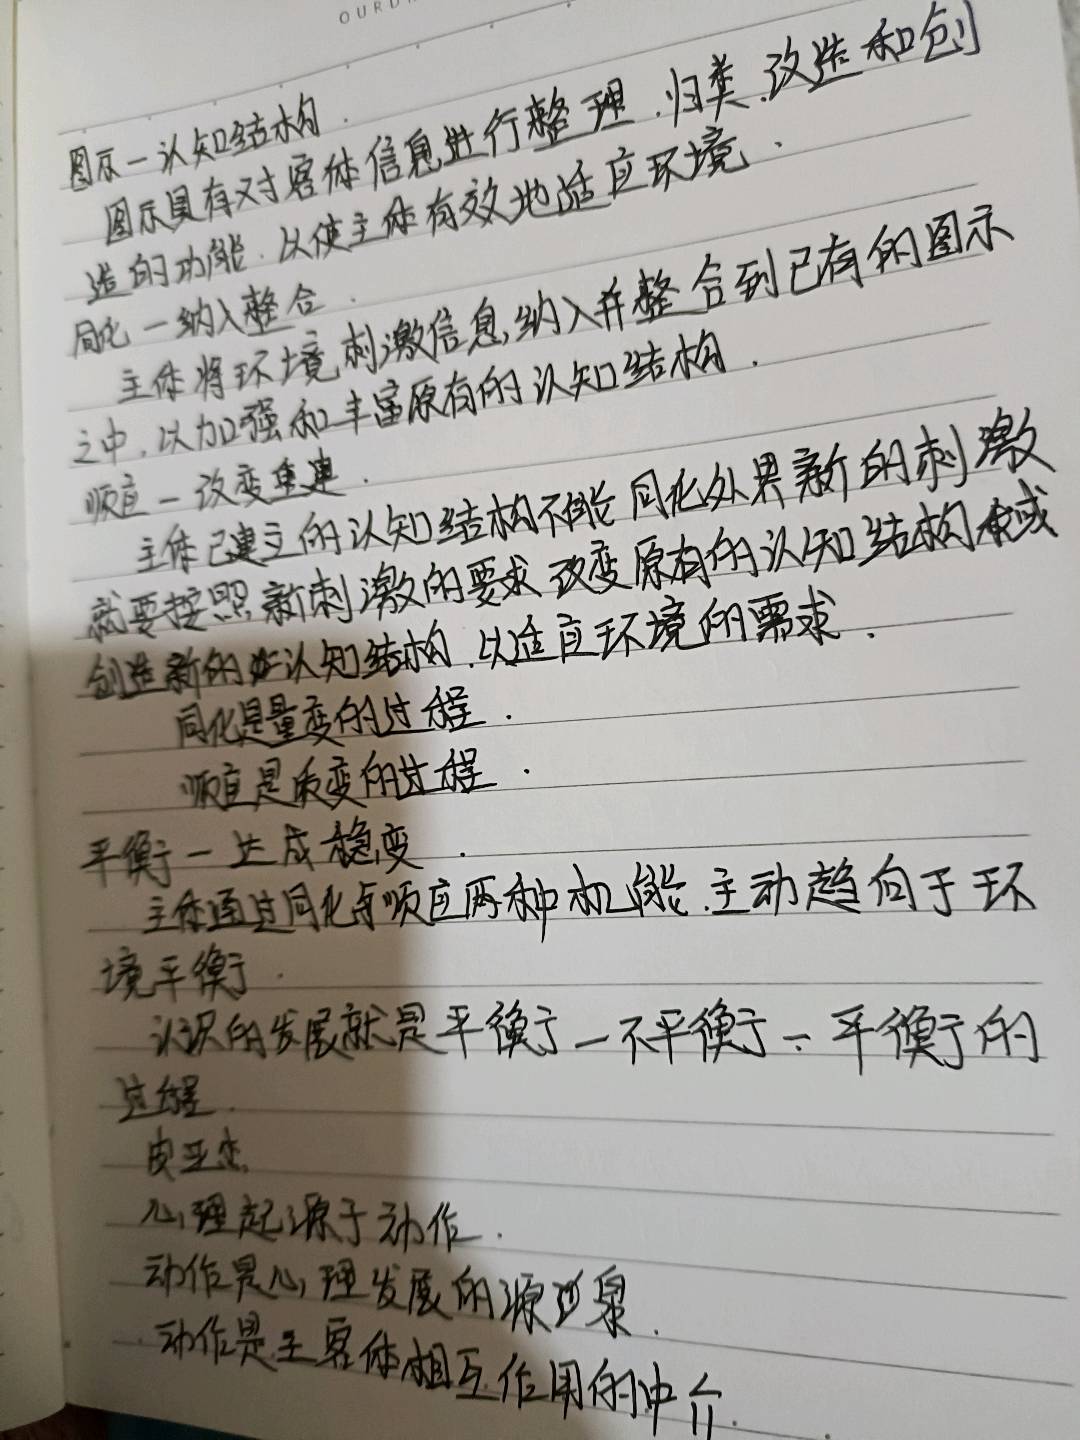 OURD
图示一认知结构.
图示具有对客体信息进行整理.归类.改造和创
造的功能.以使主体有效地适应环境.
同化一纳入整合.
主体将环境刺激信息,纳入并整合到已有的图示
之中.以加强和丰富原有的认知结构.
顺应一改变重建.
主体已建立的认知结构不能同化外界新的刺激
就要按照新刺激的要求改变原有的认知结构或
创造新的认知结构.以适应环境的需求.
同化是量变的过程.
顺应是质变的过程.
平衡一达成稳变.
主体通过同化与顺应两种机能.主动趋向于环
境平衡.
认识的发展就是平衡一不平衡一平衡的
过程.
皮亚杰
心理起源于动作.
动作是心理发展的源泉.
动作是主客体相互作用的中介.